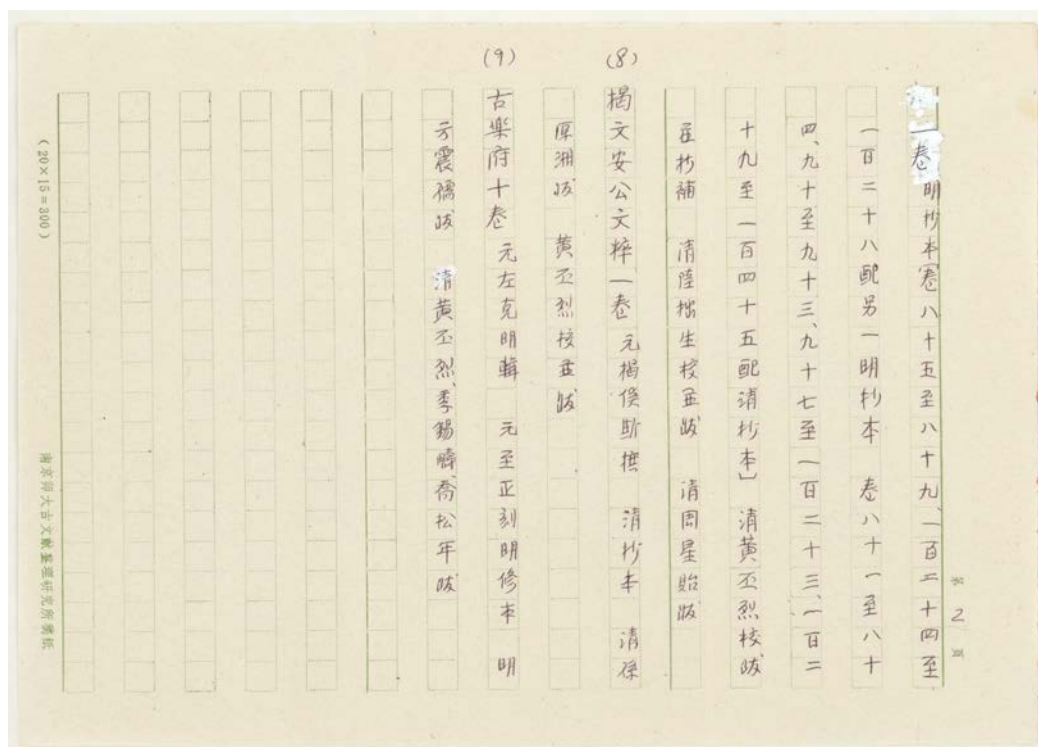 第 2 页
一卷 明抄本〔卷八十五至八十九、一百二十四至
一百二十八配另一明抄本 卷八十一至八十
四、九十至九十三、九十七至一百二十三、一百二
十九至一百四十五配清抄本〕 清黄丕烈校跋
并抄補 清陸拙生校並跋 清周星貽跋
(8)
揭文安公文粹一卷 元揭傒斯撰 清抄本 清孫
原湘跋 黄丕烈校並跋
(9)
古樂府十卷 元左克明輯 元至正刻明修本 明
方震孺跋 清黄丕烈、季錫疇、喬松年跋
(20×15=300)
南京师大古文献整理研究所稿纸